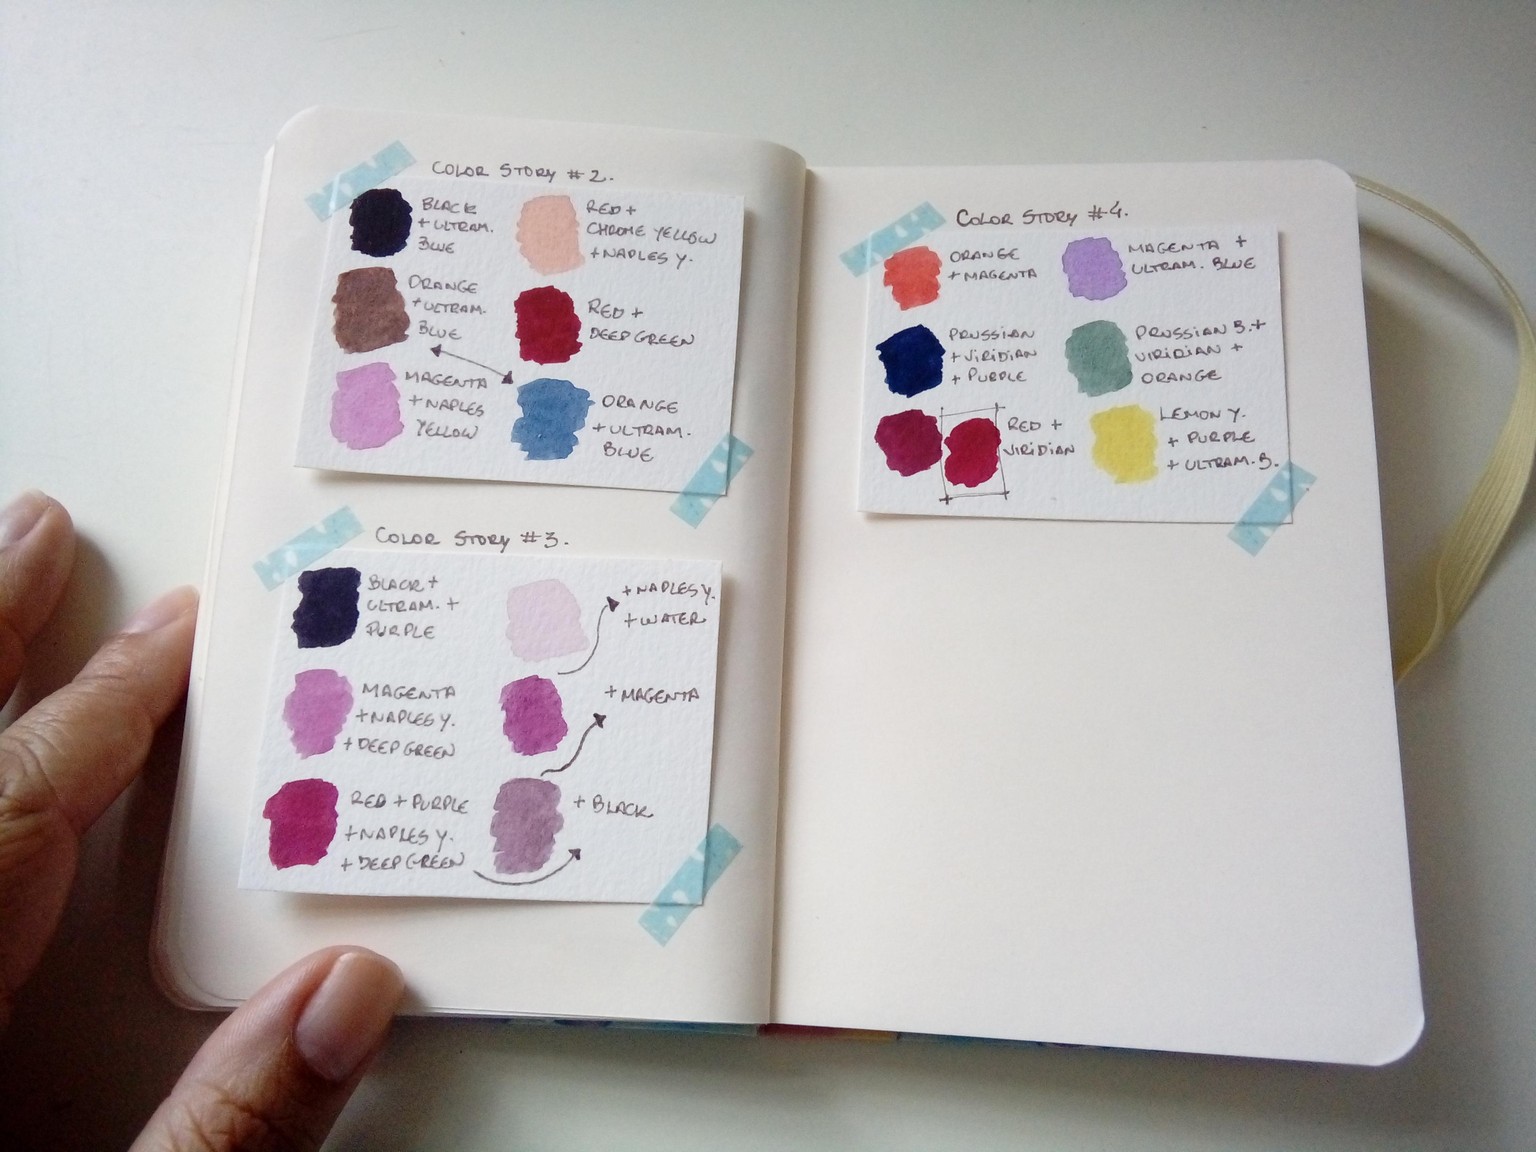 COLOR STORY #2.
BLACK
+ ULTRAM.
BLUE
RED +
CHROME YELLOW
+ NAPLES Y.
ORANGE
+ ULTRAM.
BLUE
RED +
DEEP GREEN
MAGENTA
+ NAPLES
YELLOW
ORANGE
+ ULTRAM.
BLUE
COLOR STORY #3.
BLACK +
ULTRAM. +
PURPLE
+ NAPLES Y.
+ WATER
MAGENTA
+ NAPLES Y.
+ DEEP GREEN
+ MAGENTA
RED + PURPLE
+ NAPLES Y.
+ DEEP GREEN
+ BLACK
COLOR STORY #4.
ORANGE
+ MAGENTA
MAGENTA +
ULTRAM. BLUE
PRUSSIAN
+ VIRIDIAN
+ PURPLE
PRUSSIAN B. +
VIRIDIAN +
ORANGE
RED +
VIRIDIAN
LEMON Y.
+ PURPLE
+ ULTRAM. B.